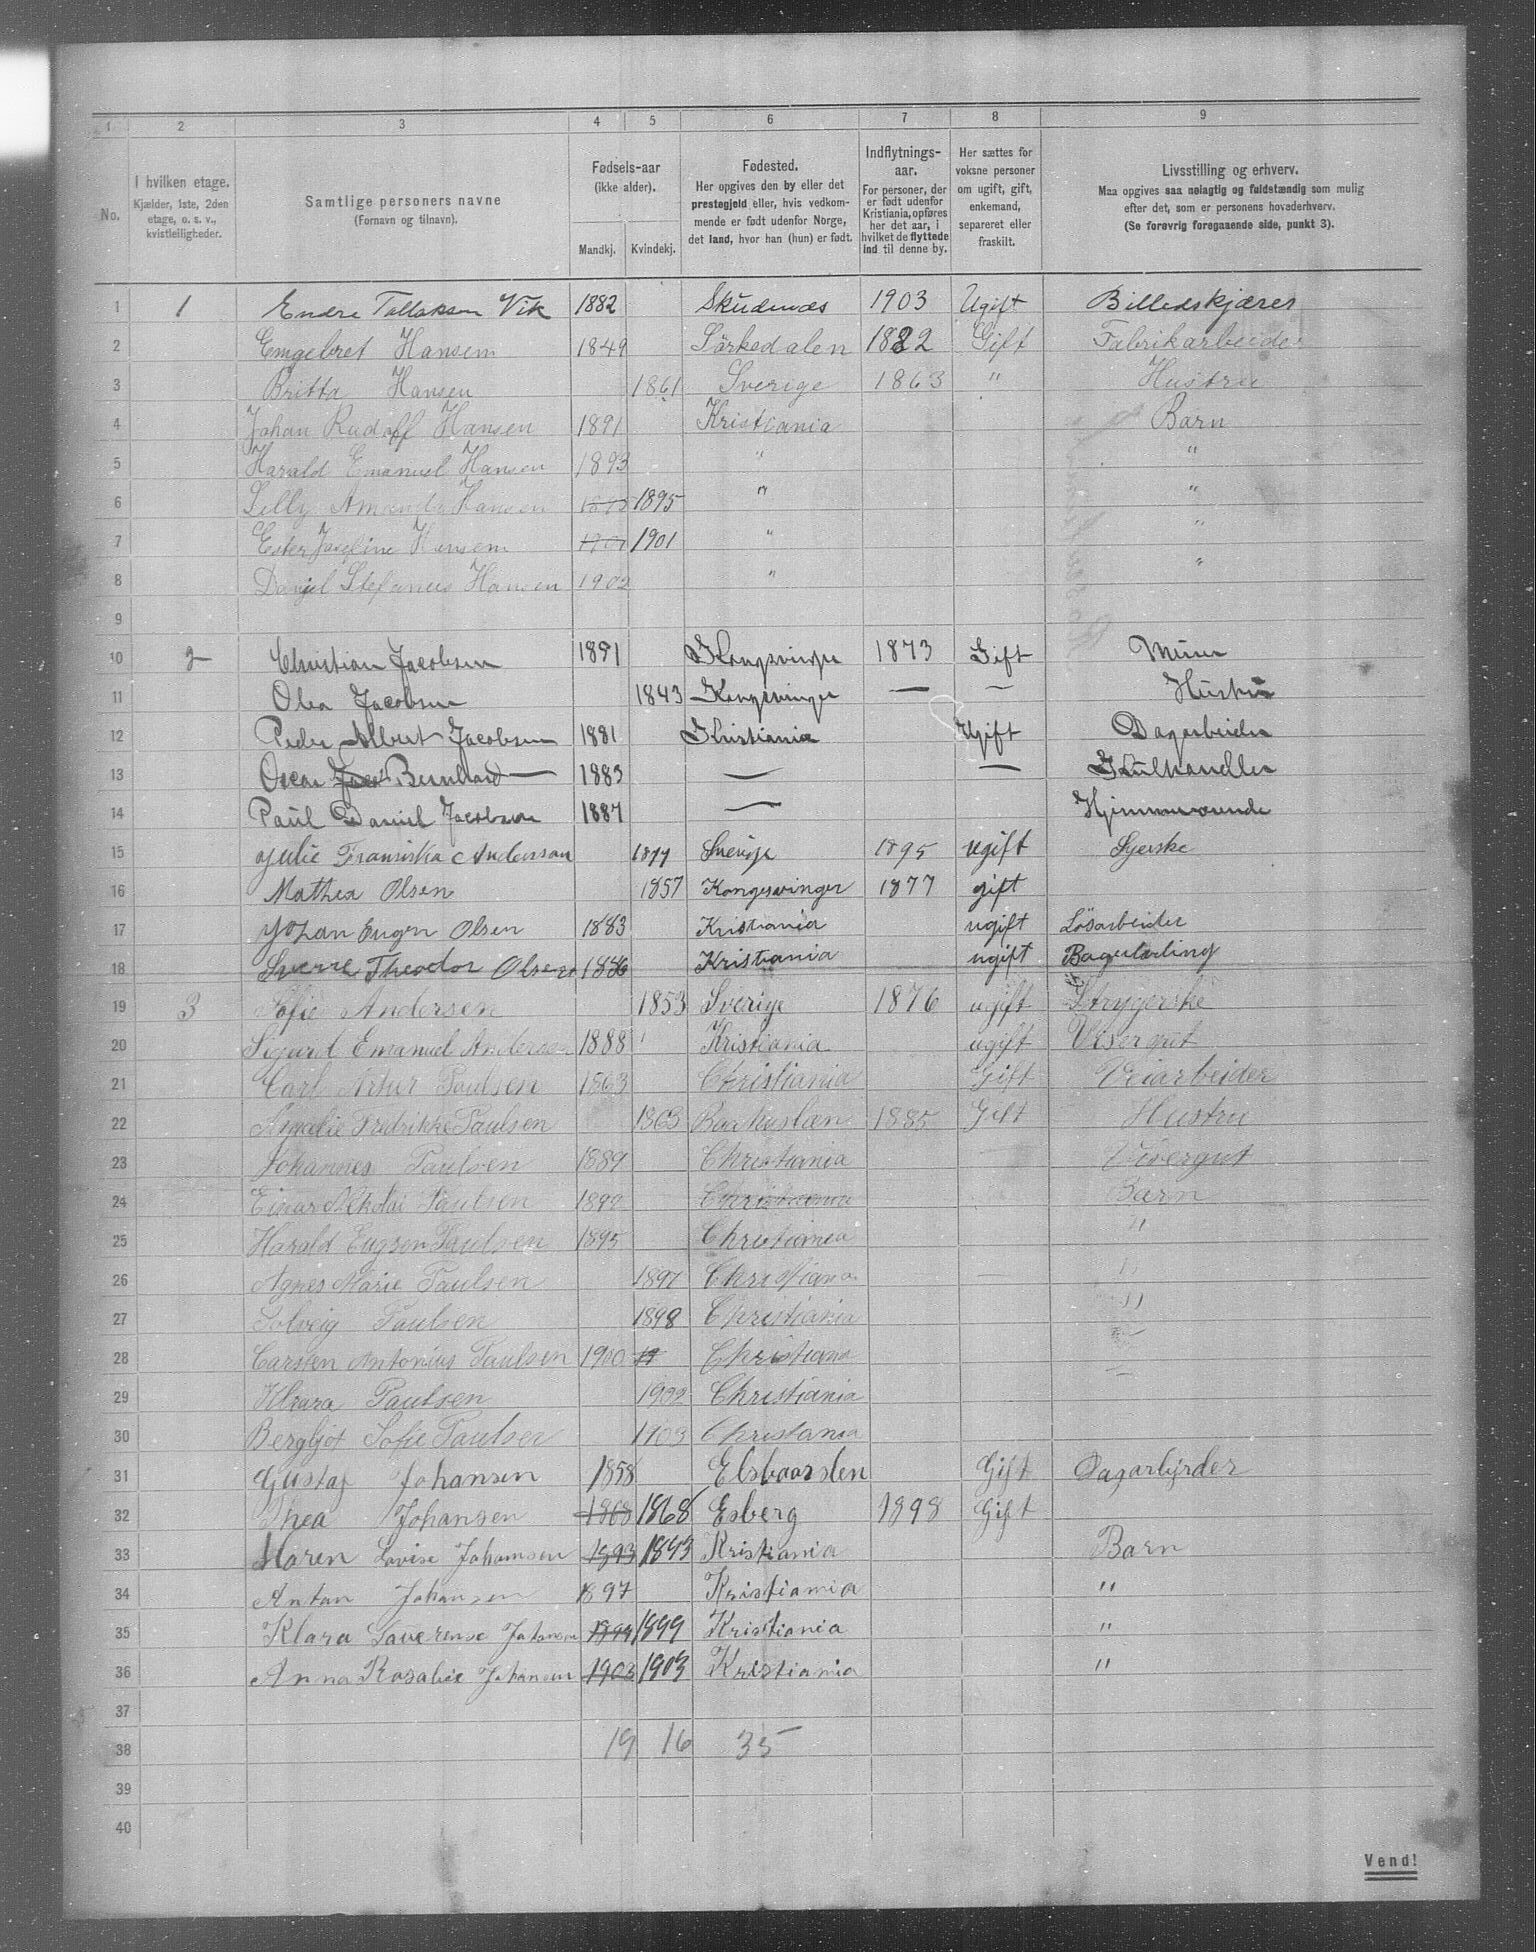 1 2 3 4 5 6 7 8 9
No.
I hvilken etage.
Kjælder, 1ste, 2den
etage, o. s. v.,
kvistleiligheder.
Samtlige personers navne
(Fornavn og tilnavn).
Fødsels-aar
(ikke alder).
Mandkj. Kvindekj.
Fødested.
Her opgives den by eller det
prestegjeld eller, hvis vedkom-
mende er født udenfor Norge,
det land, hvor han (hun) er født.
Indflytnings-
aar.
For personer, der
er født udenfor
Kristiania, opføres
her det aar, i
hvilket de flyttede
ind til denne by.
Her sættes for
voksne personer
om ugift, gift,
enkemand,
separeret eller
fraskilt.
Livsstilling og erhverv.
Maa opgives saa nøiagtig og fuldstændig som mulig
efter det, som er personens hovederhverv.
(Se forøvrig foregaaende side, punkt 3).
1 1 Endre Tollaksen Vik 1882 Skudenæs 1903 Ugift Billedskjærer
2 Engebret Hansen 1849 Sörkedalen 1882 Gift Fabrikarbeider
3 Britta Hansen 1861 Sverige 1863 " Hustru
4 Johan Rudolf Hansen 1891 Kristiania Barn
5 Harald Emanuel Hansen 1893 " "
6 Lilly Amanda Hansen 1895 1895 " "
7 Ester Josefine Hansen 1901 1901 " "
8 Daniel Stefanus Hansen 1902 " "
9
10 2 Christian Jacobsen 1851 Kongsvinger 1873 Gift Murer
11 Olea Jacobsen 1843 Kongsvinger — — Hustru
12 Peder Albert Jacobsen 1881 Kristiania Ugift Dagarbeider
13 Oscar Jacob Bernhard — 1883 — — Kulhandler
14 Paul Daniel Jacobsen 1887 — Hjemmeværende
15 Julie Fransiska Anderson 1877 Sverige 1895 ugift Syerske
16 Mathea Olsen 1857 Kongesvinger 1877 gift
17 Johan Eugen Olsen 1883 Kristiania ugift Løsarbeider
18 Sverre Theodor Olsen 1886 Kristiania ugift Bagerlærling
19 3 Sofie Andersen 1853 Sverige 1876 ugift Strygerske
20 Sigurd Emanuel Andersen 1888 Kristiania ugift Visergut
21 Carl Artur Paulsen 1863 Christiania Gift Veiarbeider
22 Amalie Fredrikke Paulsen 1863 1885 Gift Hustru
23 Johannes Paulsen 1889 Christiania Visergut
24 Einar Nikolai Paulsen 1892 Christiania Barn
25 Harald Eugen Paulsen 1895 Christiania "
26 Agnes Marie Paulsen 1897 Christiania "
27 Solveig Paulsen 1898 Christiania "
28 Carsten Antonius Paulsen 1900 19 Christiania
29 Klara Paulsen 1902 Christiania
30 Bergljot Sofie Paulsen 1903 Christania
31 Gustaf Johansen 1858 Gift Dagarbejder
32 Thea Johansen 1868 1868 Esberg 1898 Gift
33 Maren Lovise Johansen 1893 1893 Kristiania Barn
34 Antan Johansen 1897 Kristiania "
35 Klara Laverense Johansen 1899 1899 Kristiania "
36 Anna Rosalie Johansen 1903 1903 Kristiania "
37
38 19 16 35
39
40
Vend!